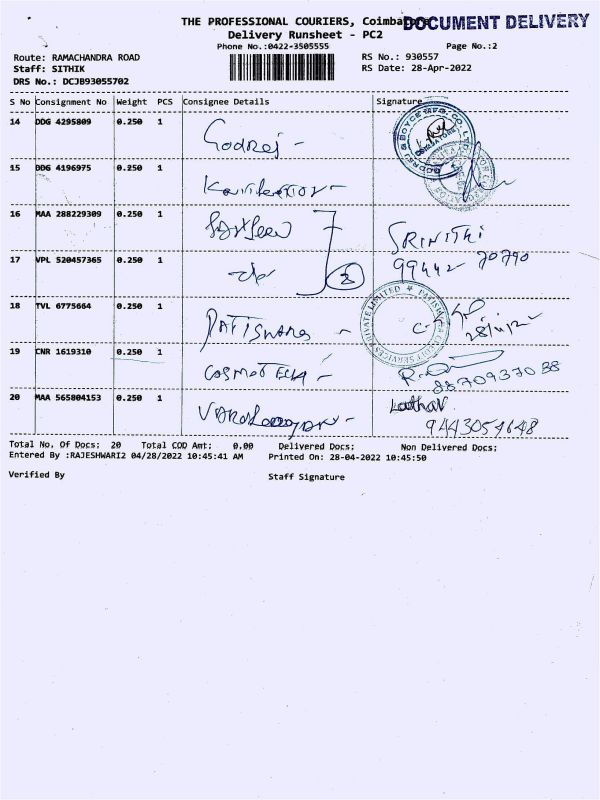 THE PROFESSIONAL COURIERS, Coimbatore
DOCUMENT DELIVERY
Delivery Runsheet - PC2
Phone No.:0422-3505555
Page No.:2
Route: RAMACHANDRA ROAD
RS No.: 930557
Staff: SITHIK
RS Date: 28-Apr-2022
DRS No.: DCJB93055702
S No Consignment No Weight PCS Consignee Details Signature
14 DDG 4295809 0.250 1 Godrej -
GODREJ & BOYCE MFG. CO. LTD
COIMBATORE
15 DDG 4196975 0.250 1
16 MAA 288229309 0.250 1 SRINITHI
17 VPL 520457365 0.250 1 2 99442 70790
18 TVL 6775664 0.250 1
PRIVATE LIMITED
19 CNR 1619310 0.250 1 COSMOTECH - 8870937038
20 MAA 565804153 0.250 1 9443054648
Total No. Of Docs: 20 Total COD Amt: 0.00 Delivered Docs: Non Delivered Docs:
Entered By :RAJESHWARI2 04/28/2022 10:45:41 AM Printed On: 28-04-2022 10:45:50
Verified By Staff Signature